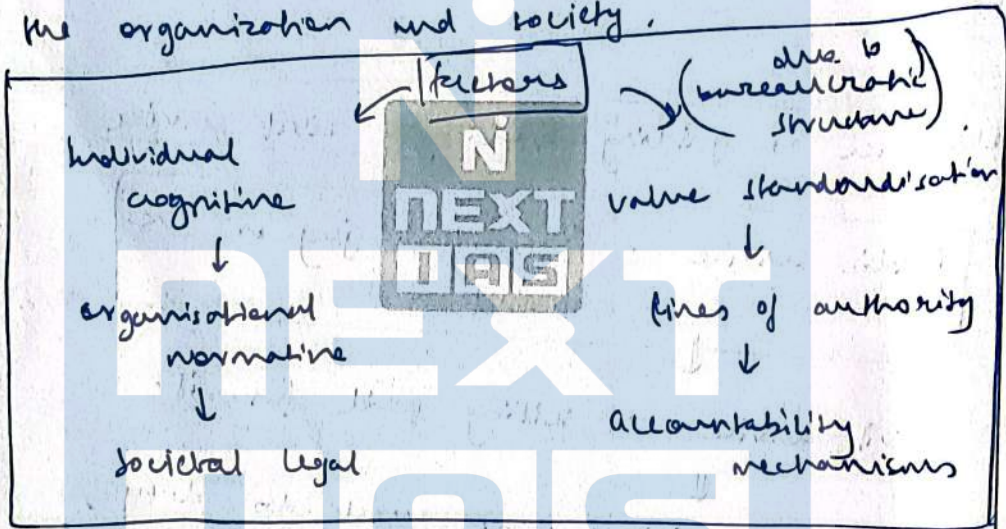 the organization and society.
factors
(due to
bureaucratic
structure)
Individual
cognitive
↓
organisational
normative
↓
Societal legal
value standardisation
↓
lines of authority
↓
accountability
mechanisms
N
NEXT
IAS
NEXT